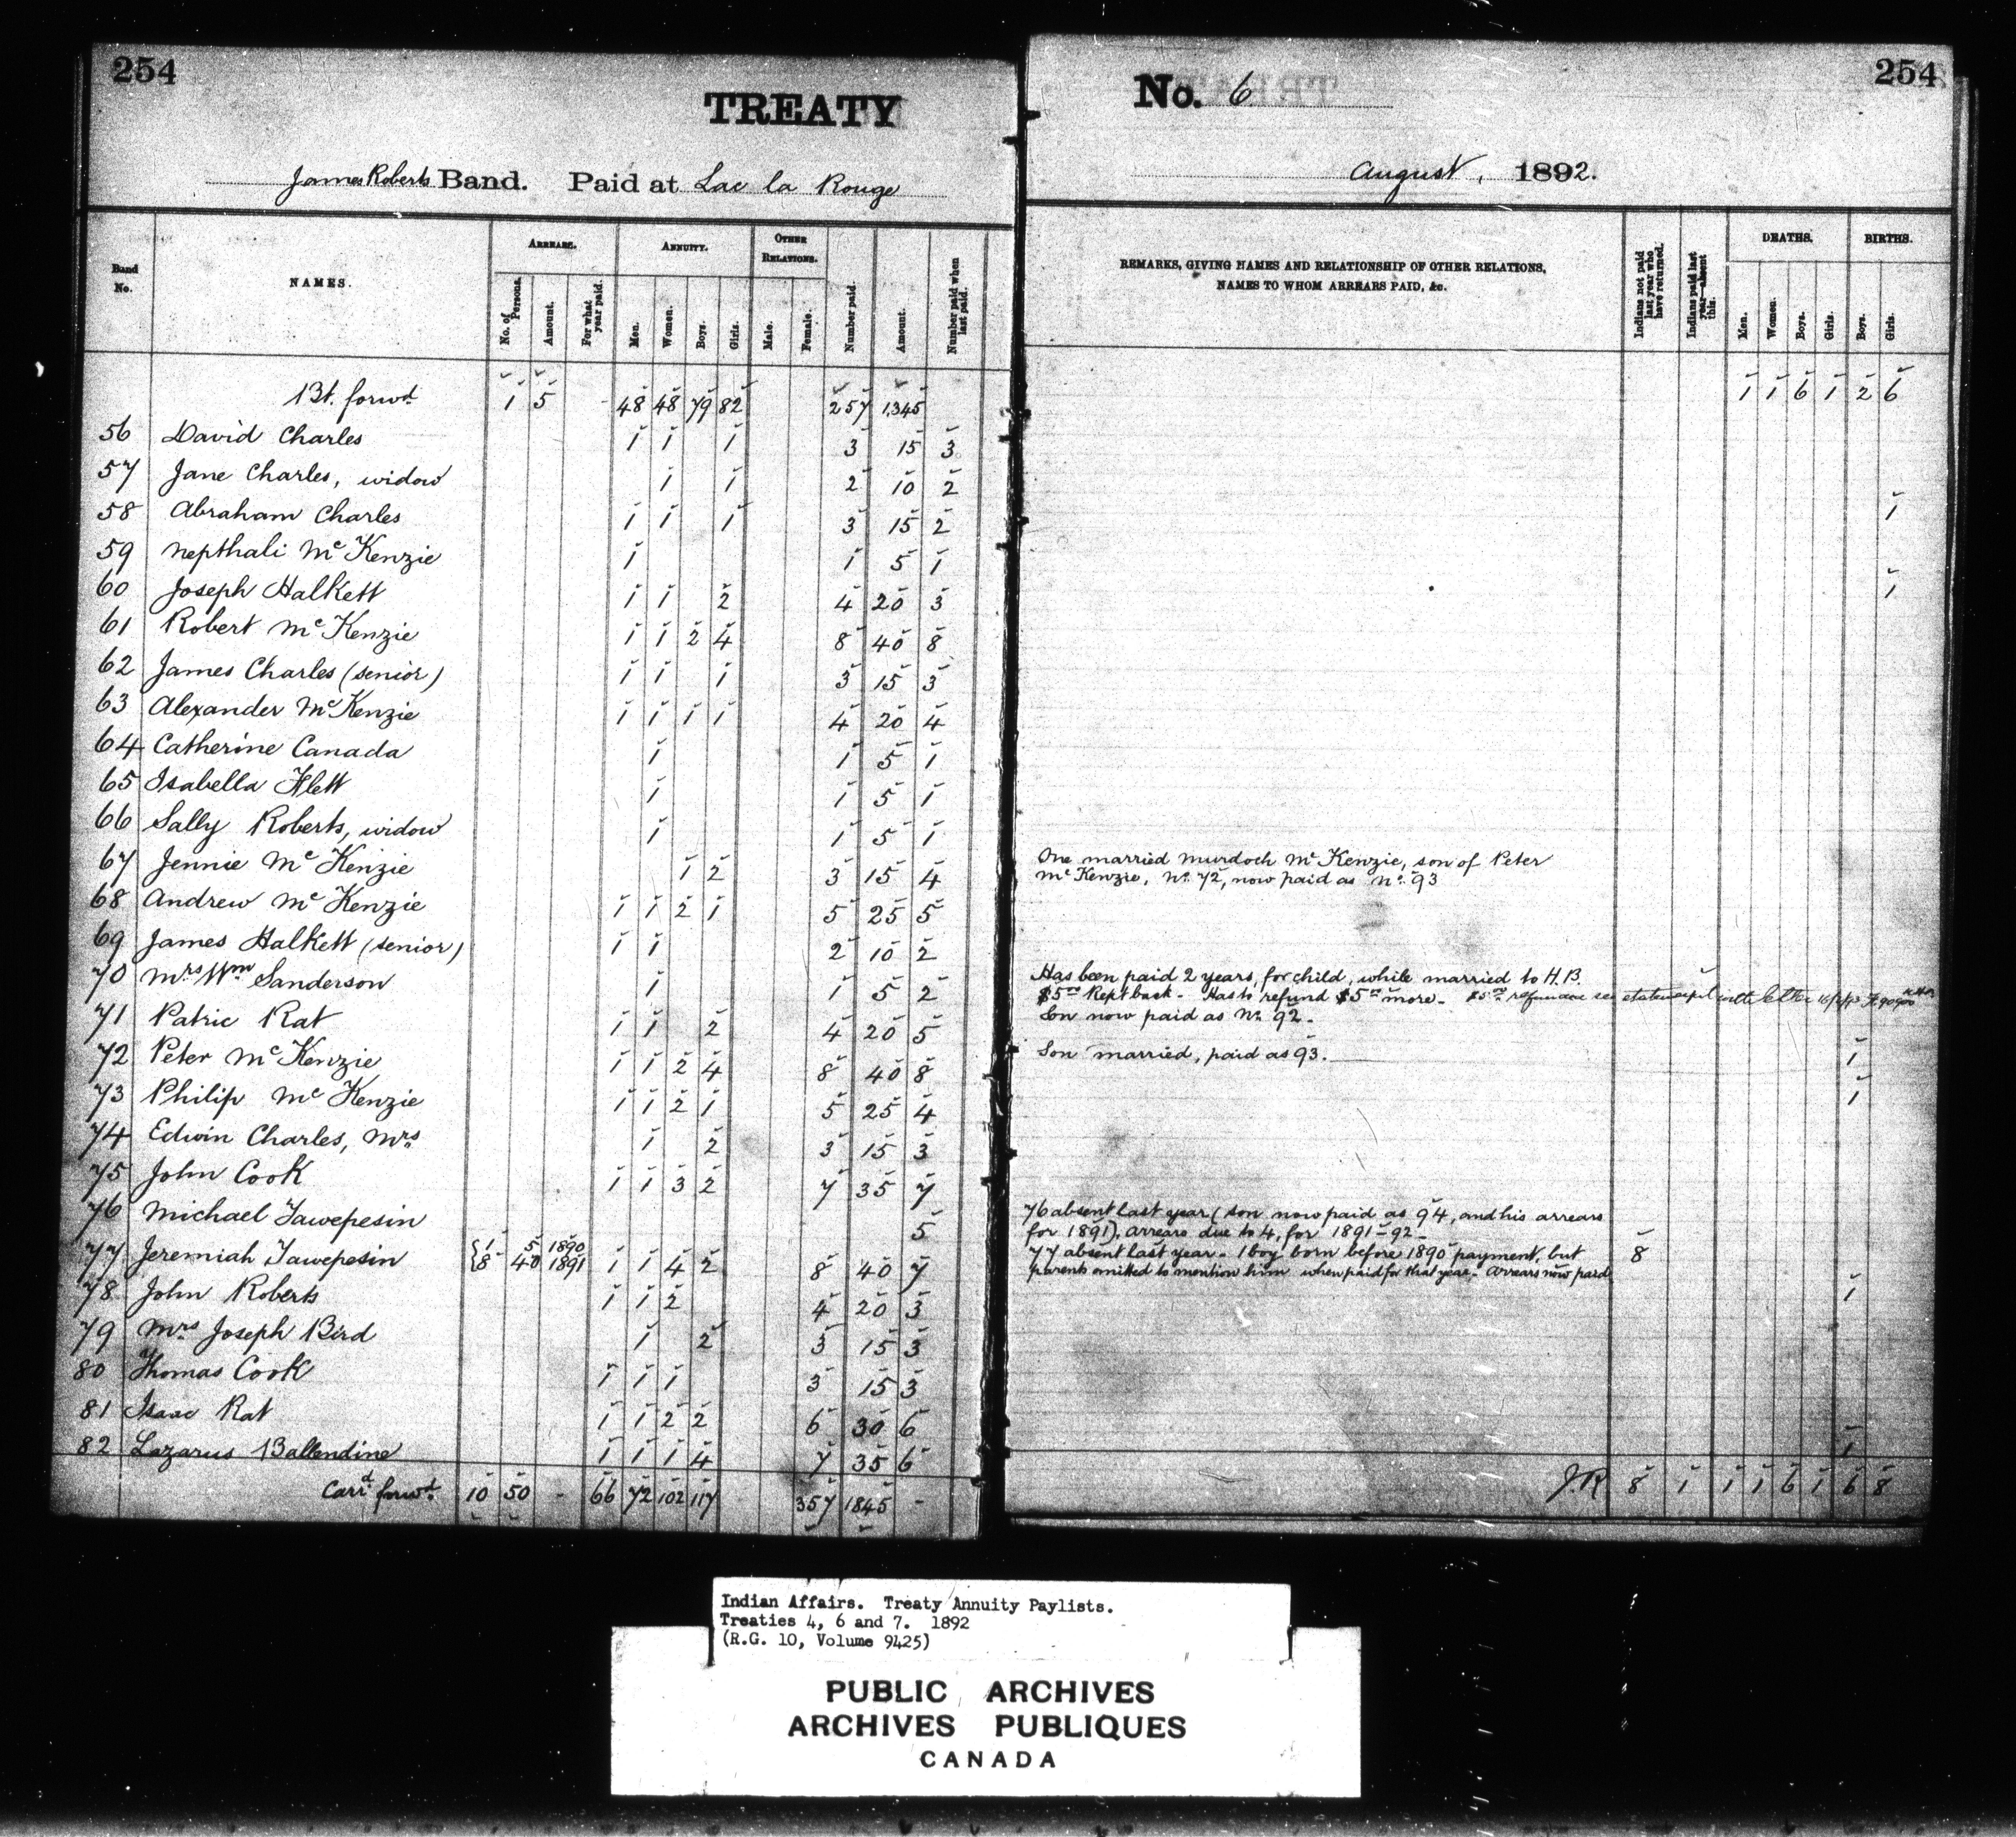 254
TREATY
James Roberts Band. Paid at Lac la Rouge
No. 6
254
August, 1892.
Band No.
NAMES.
ARREARS.
No. of Persons.
Amount.
For what year paid.
ANNUITY.
Men.
Women.
Boys.
Girls.
OTHER RELATIONS.
Male.
Female.
Number paid.
Amount.
Number paid when last paid.
REMARKS, GIVING NAMES AND RELATIONSHIP OF OTHER RELATIONS,
NAMES TO WHOM ARREARS PAID, &c.
Indians not paid last year who have returned.
Indians paid last year—absent this.
DEATHS.
Men.
Women.
Boys.
Girls.
BIRTHS.
Boys.
Girls.
Bt. forwd 1 5 - 48 48 79 82 257 1,345 1 1 6 1 2 6
56 David Charles 1 1 1 3 15 3
57 Jane Charles, widow 1 1 2 10 2
58 Abraham Charles 1 1 1 3 15 2 1
59 Nepthali McKenzie 1 1 5 1
60 Joseph Halkett 1 1 2 4 20 3 1
61 Robert McKenzie 1 1 2 4 8 40 8
62 James Charles (senior) 1 1 1 3 15 3
63 Alexander McKenzie 1 1 1 1 4 20 4
64 Catherine Canada 1 1 5 1
65 Isabella Flett 1 1 5 1
66 Sally Roberts, widow 1 1 5 1
67 Jennie McKenzie 1 2 3 15 4 One married Murdoch McKenzie, son of Peter
McKenzie, No. 72, now paid as No. 93
68 Andrew McKenzie 1 1 2 1 5 25 5
69 James Halkett (senior) 1 1 2 10 2
70 Mrs Wm Sanderson 1 1 5 2 Has been paid 2 years, for child, while married to H.B.
$5.00 Kept back - Has to refund $5.00 more - $5.00 see statement with letter
71 Patric Rat 1 1 2 4 20 5 Son now paid as No. 92.
72 Peter McKenzie 1 1 2 4 8 40 8 Son married, paid as 93. 1
73 Philip McKenzie 1 1 2 1 5 25 4 1
74 Edwin Charles, Mrs 1 2 3 15 3
75 John Cook 1 1 3 2 7 35 7
76 Michael Tawepesin 5 76 absent last year (son now paid as 94, and his arrears
for 1891), arrears due to 4, for 1891-92-
77 Jeremiah Tawepesin { 1 5 1890
8 40 1891 1 1 4 2 8 40 7 77 absent last year - 1 boy born before 1890 payment, but 8
parents omitted to mention him when paid for that year - arrears now paid
78 John Roberts 1 1 2 4 20 3 1
79 Mrs Joseph Bird 1 2 3 15 3
80 Thomas Cook 1 1 1 3 15 3
81 Isaac Rat 1 1 2 2 6 30 6
82 Lazarus Ballendine 1 1 1 4 7 35 6 1
Carrd forwd. 10 50 - 66 72 102 117 357 1845 - J.R 8 1 1 1 6 1 6 8
Indian Affairs. Treaty Annuity Paylists.
Treaties 4, 6 and 7. 1892
(R.G. 10, Volume 9425)
PUBLIC ARCHIVES
ARCHIVES PUBLIQUES
CANADA